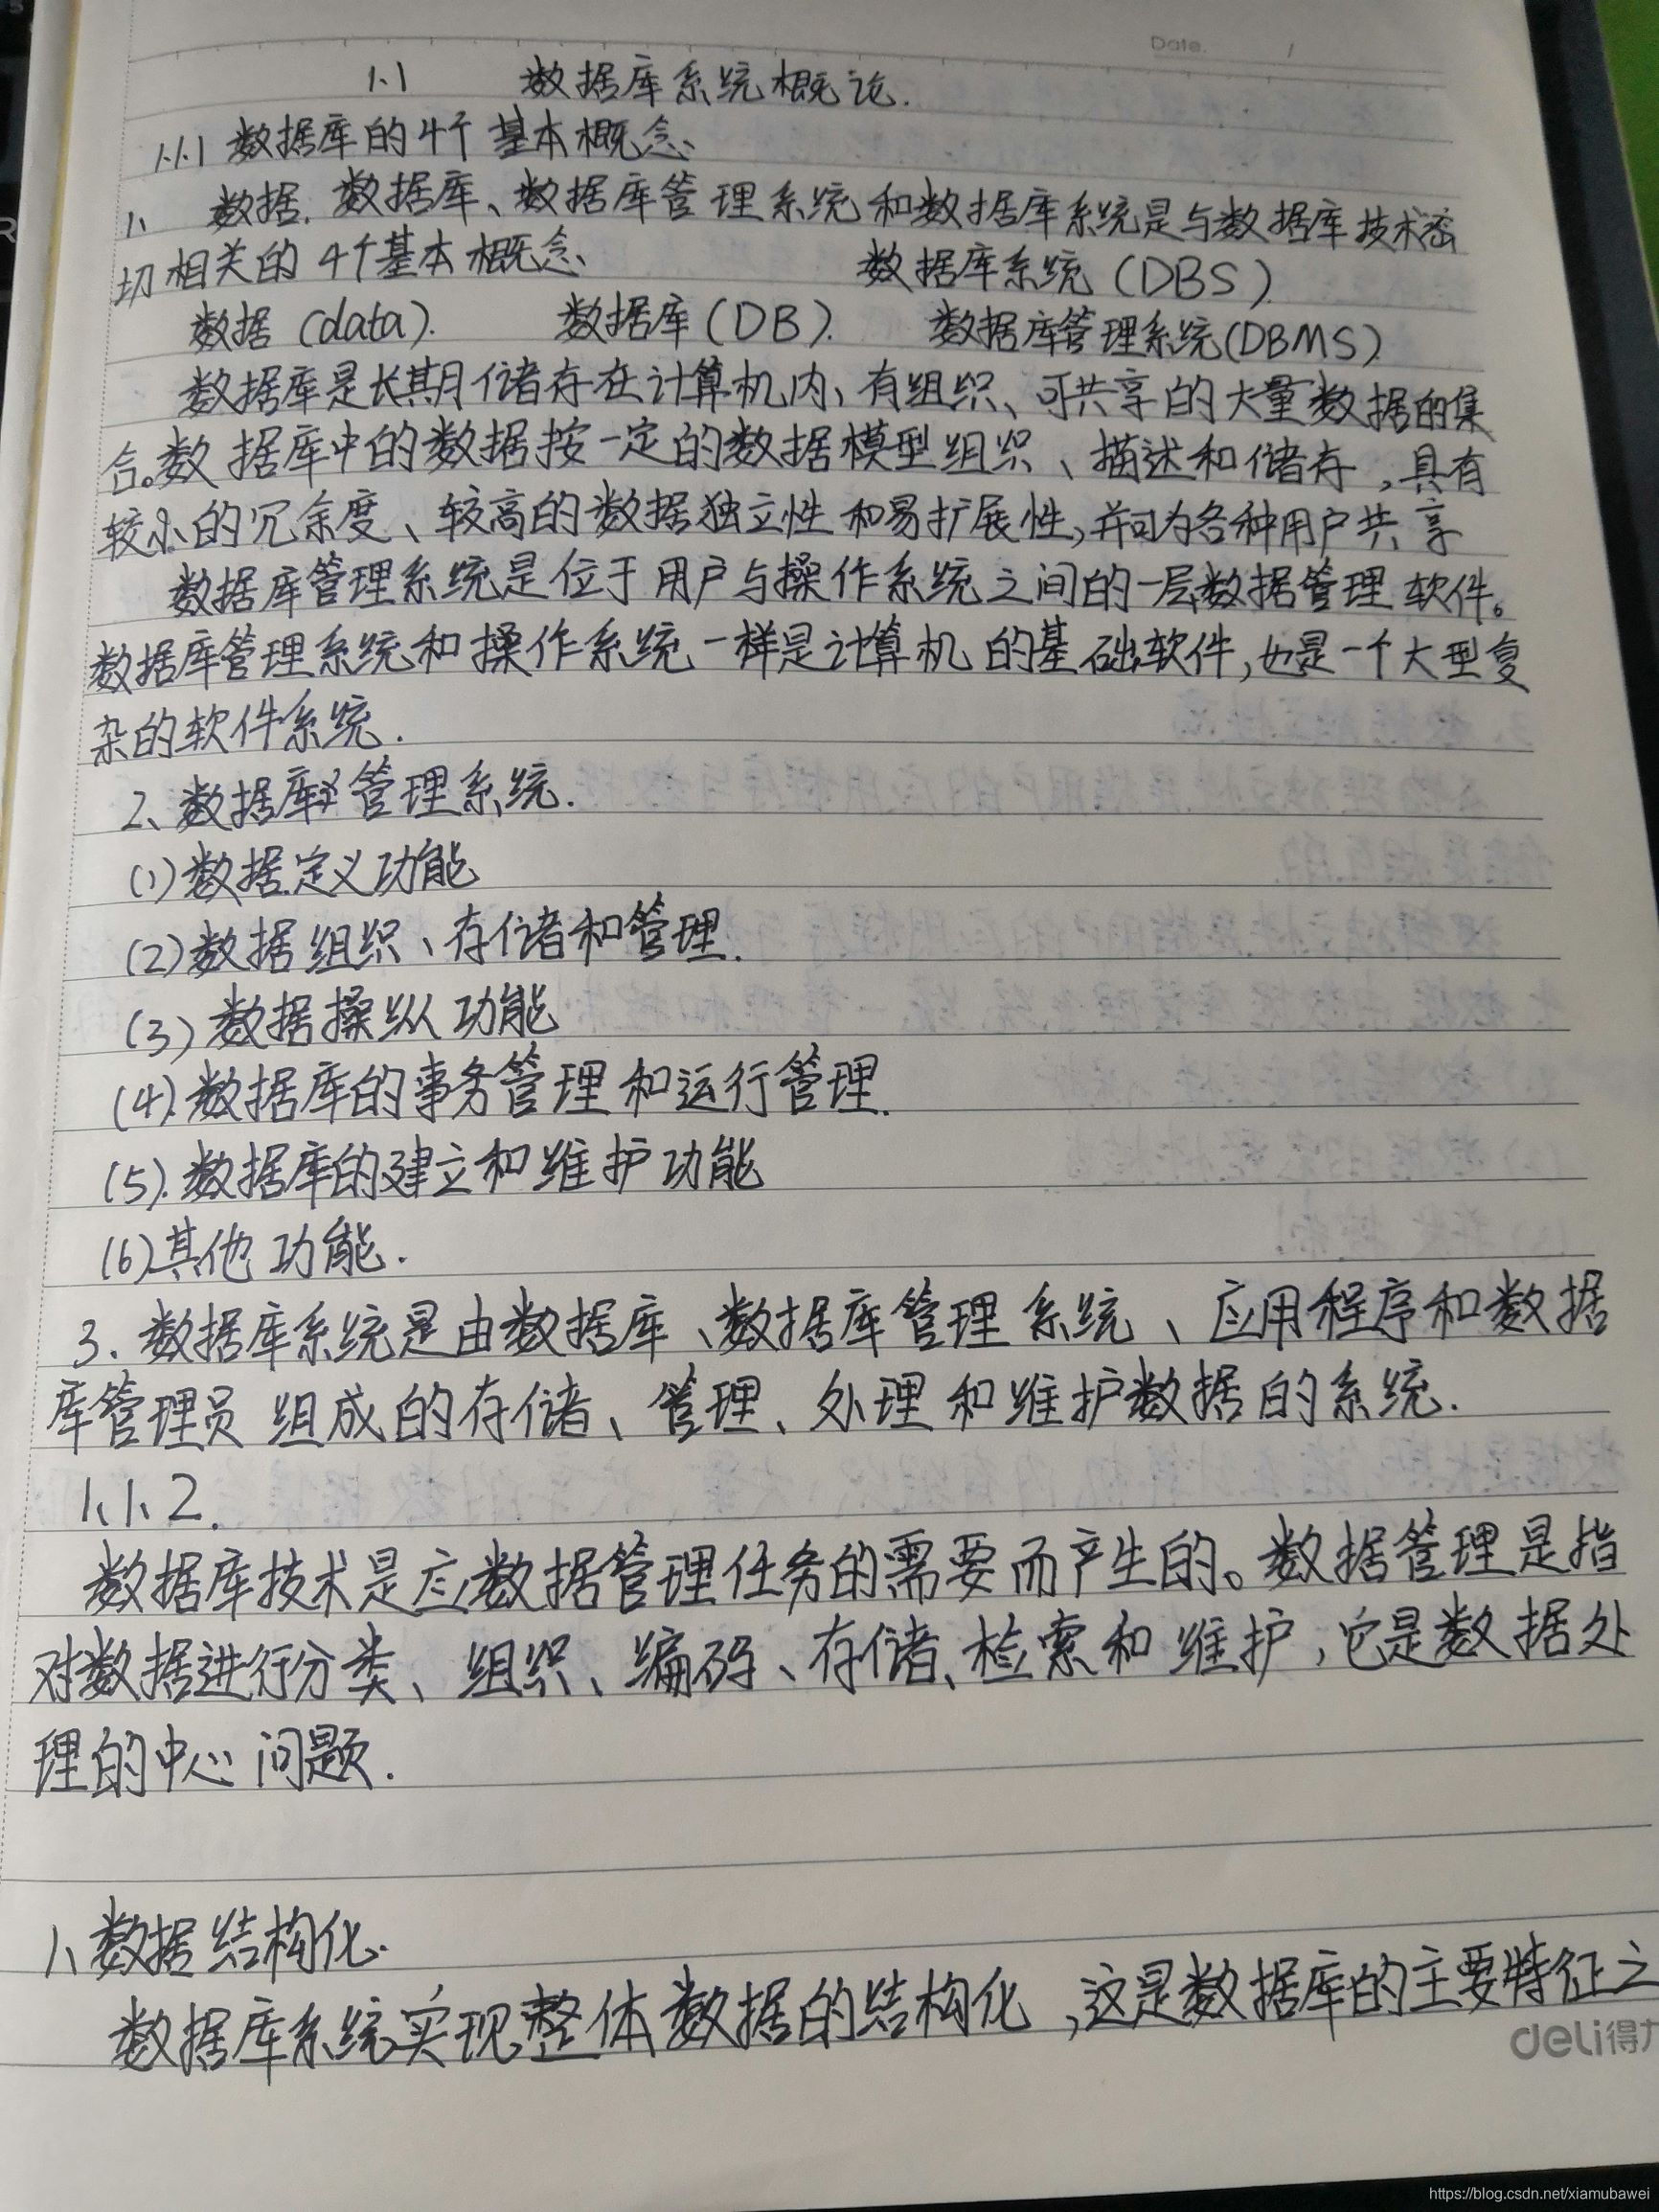 Date. /
1.1 数据库系统概论.
1.1.1 数据库的4个基本概念、
1、 数据、数据库、数据库管理系统和数据库系统是与数据库技术密
切相关的4个基本概念、 数据库系统(DBS)
数据(data). 数据库(DB). 数据库管理系统(DBMS)
数据库是长期储存在计算机内、有组织、可共享的大量数据的集
合。数据库中的数据按一定的数据模型组织、描述和储存,具有
较小的冗余度、较高的数据独立性和易扩展性,并可为各种用户共享
数据库管理系统是位于用户与操作系统之间的一层数据管理软件。
数据库管理系统和操作系统一样是计算机的基础软件,也是一个大型复
杂的软件系统.
2、数据库管理系统.
(1)数据定义功能
(2)数据组织、存储和管理.
(3)数据操纵功能
(4).数据库的事务管理和运行管理.
(5).数据库的建立和维护功能
(6)其他功能.
3.数据库系统是由数据库、数据库管理系统、应用程序和数据
库管理员组成的存储、管理、处理和维护数据的系统.
1、1、2.
数据库技术是应数据管理任务的需要而产生的。数据管理是指
对数据进行分类、组织、编码、存储、检索和维护,它是数据处
理的中心问题.
1、数据结构化.
数据库系统实现整体数据的结构化,这是数据库的主要特征之
deli得力
https://blog.csdn.net/xiamubawei